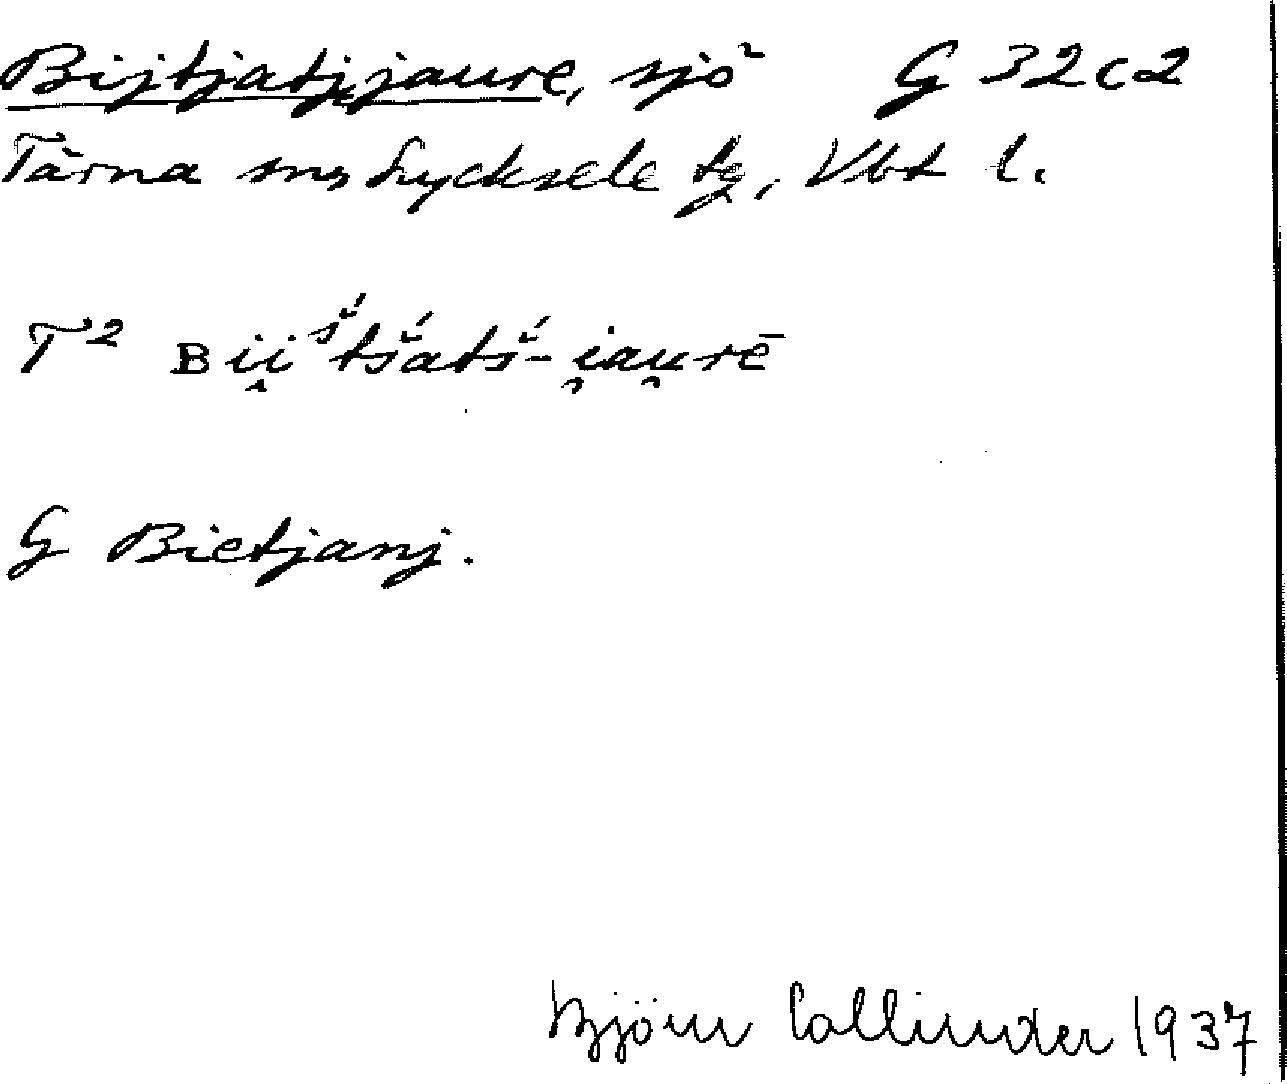 Bijtjatjjaure, sjö G 32c2
Tärna sn, Lycksele tg, Vbt l.
T² ʙii̭ š́tš́atš́-i̯au̯rē
G Bietjanj.
Björn Collinder 1937